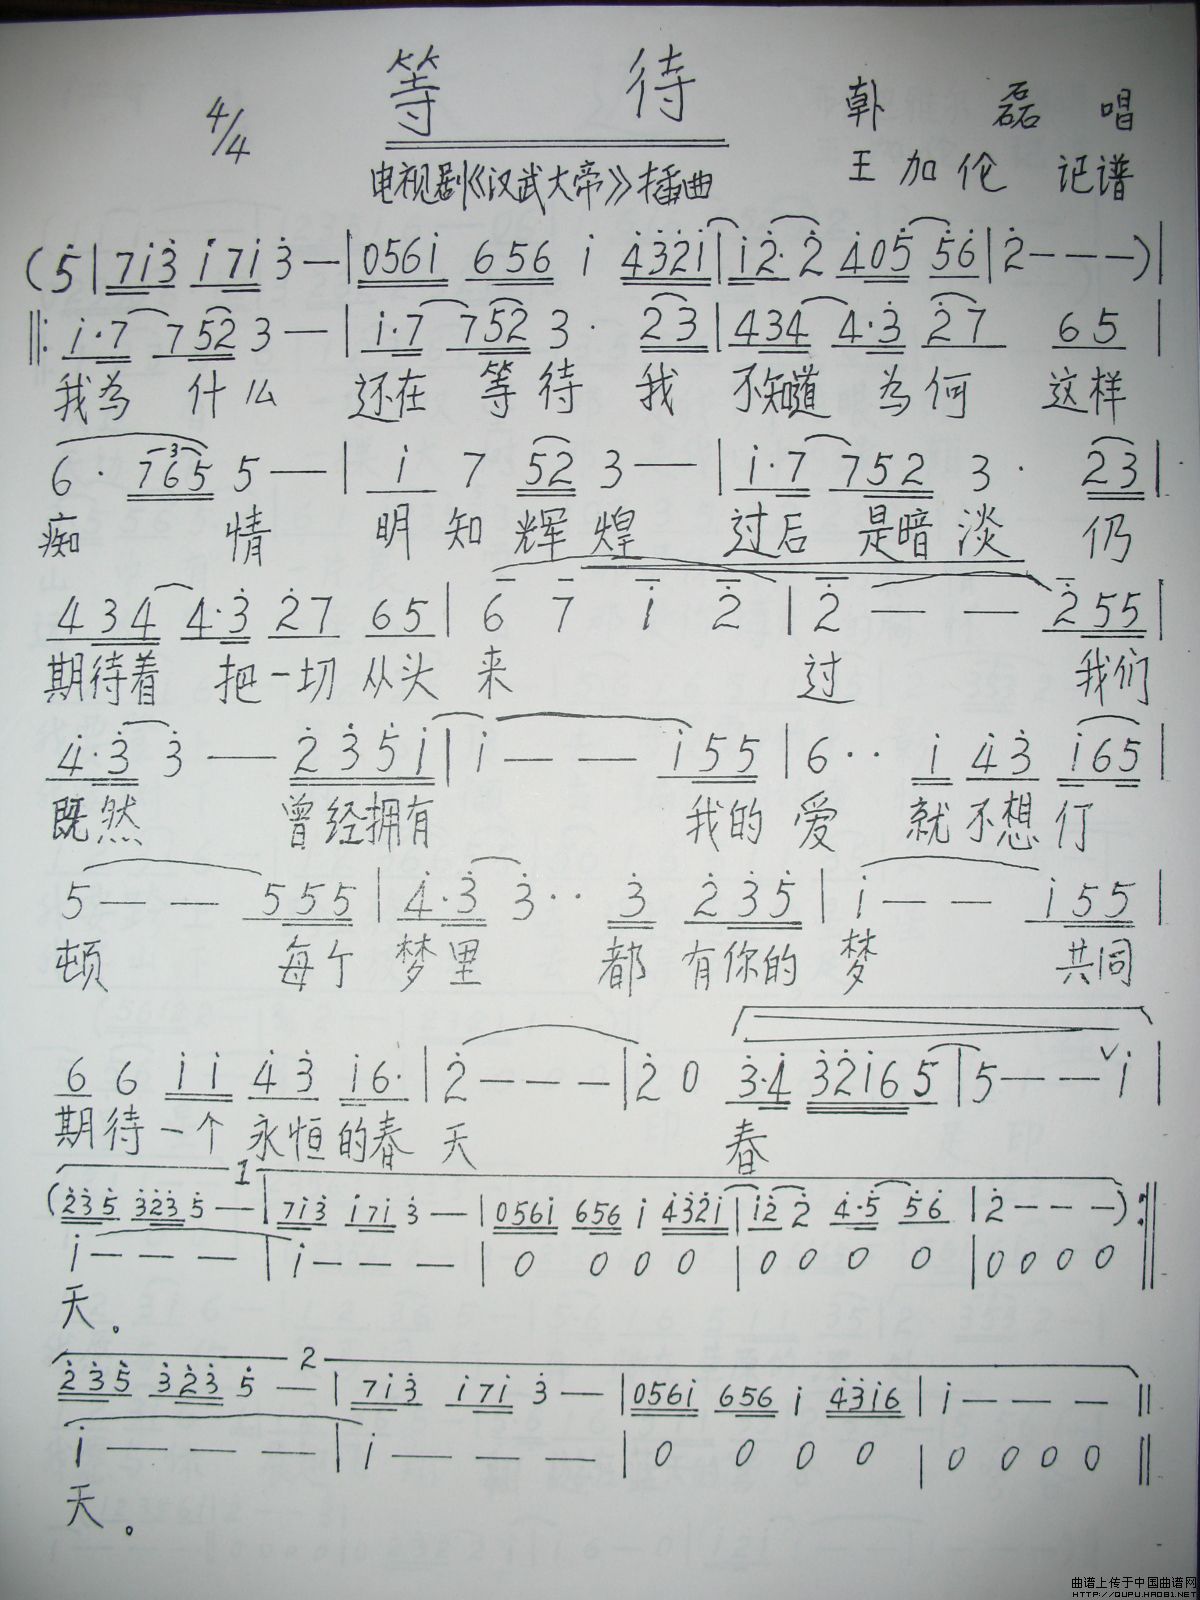 等 待
4/4
韩 磊 唱
电视剧《汉武大帝》插曲
王加伦 记谱
(5̇ | 7i̇3̇ i̇7i̇ 3̇ — | 056i̇ 656 i̇ 4̇3̇2̇i̇ | i̇2̇· 2̇ 4̇05̇ 5̇6̇ | 2̇ - - - ) |
‖: i̇·7 752 3 — | i̇·7 752 3· 23 | 434 4·3̇ 2̇7 65 |
我为 什么 还在 等待 我 不知道 为何 这样
6· 765 5 — | i̇ 7 52 3 — | i̇·7 752 3· 23 |
痴 情 明知辉煌 过后是暗淡 仍
434 4·3̇ 2̇7 65 | 6 7 i̇ 2̇ | 2̇ — — 2̇55 |
期待着 把一切从头 来 过 我们
4̇·3̇ 3̇ — 2̇3̇5̇i̇ | i̇ — — i̇55 | 6·· i̇ 4̇3̇ i̇65 |
既然 曾经拥有 我的 爱 就不想仃
5 — — 555 | 4̇·3̇ 3̇·· 3̇ 2̇3̇5̇ | i̇ — — i̇55 |
顿 每个 梦里 都 有你的 梦 共同
6 6 i̇i̇ 4̇3̇ i̇6· | 2̇ - - - | 2̇ 0 3̇·4̇ 3̇2̇i̇65 | 5 — — ˅i̇ |
期待一个 永恒的春 天 春
1
(2̇3̇5̇ 3̇2̇3̇ 5̇ — | 7i̇3̇ i̇7i̇ 3̇ — | 056i̇ 656 i̇ 4̇3̇2̇i̇ | i̇2̇ 2̇ 4̇·5̇ 5̇6̇ | 2̇ - - - ) :‖
i̇ — — — | i̇ — — — | 0 0 0 0 | 0 0 0 0 | 0 0 0 0 ‖
天。
2
2̇3̇5̇ 3̇2̇3̇ 5̇ — | 7i̇3̇ i̇7i̇ 3̇ — | 056i̇ 656 i̇ 4̇3̇i̇6 | i̇ — — — ‖
i̇ — — — | i̇ — — — | 0 0 0 0 | 0 0 0 0 ‖
天。
曲谱上传于中国曲谱网
HTTP://QUPU.HAO81.NET